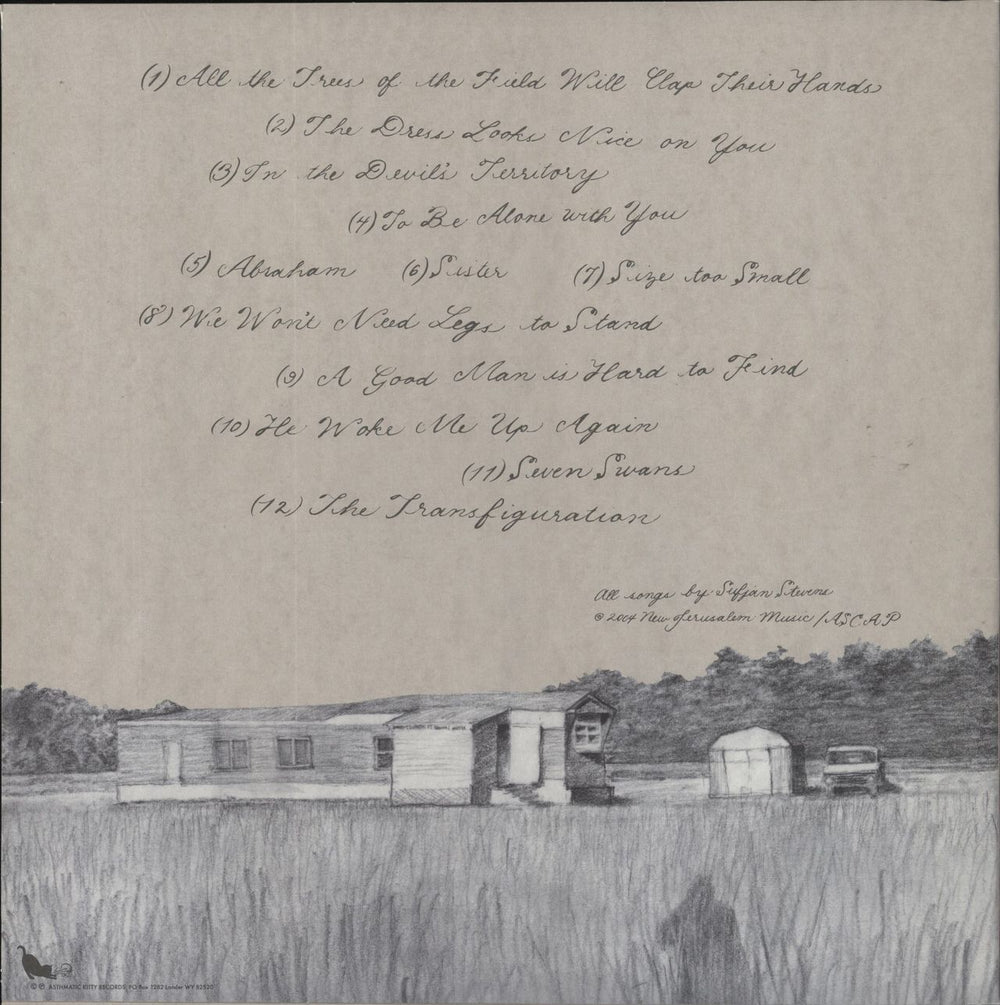 (1) All the Trees of the Field Will Clap Their Hands
(2) The Dress Looks Nice on You
(3) In the Devil's Territory
(4) To Be Alone with You
(5) Abraham (6) Sister (7) Size too Small
(8) We Won't Need Legs to Stand
(9) A Good Man is Hard to Find
(10) He Woke Me Up Again
(11) Seven Swans
(12) The Transfiguration
All songs by Sufjan Stevens
© 2004 New Jerusalem Music / ASCAP
© ℗ ASTHMATIC KITTY RECORDS, PO Box 1282 Lander WY 82520